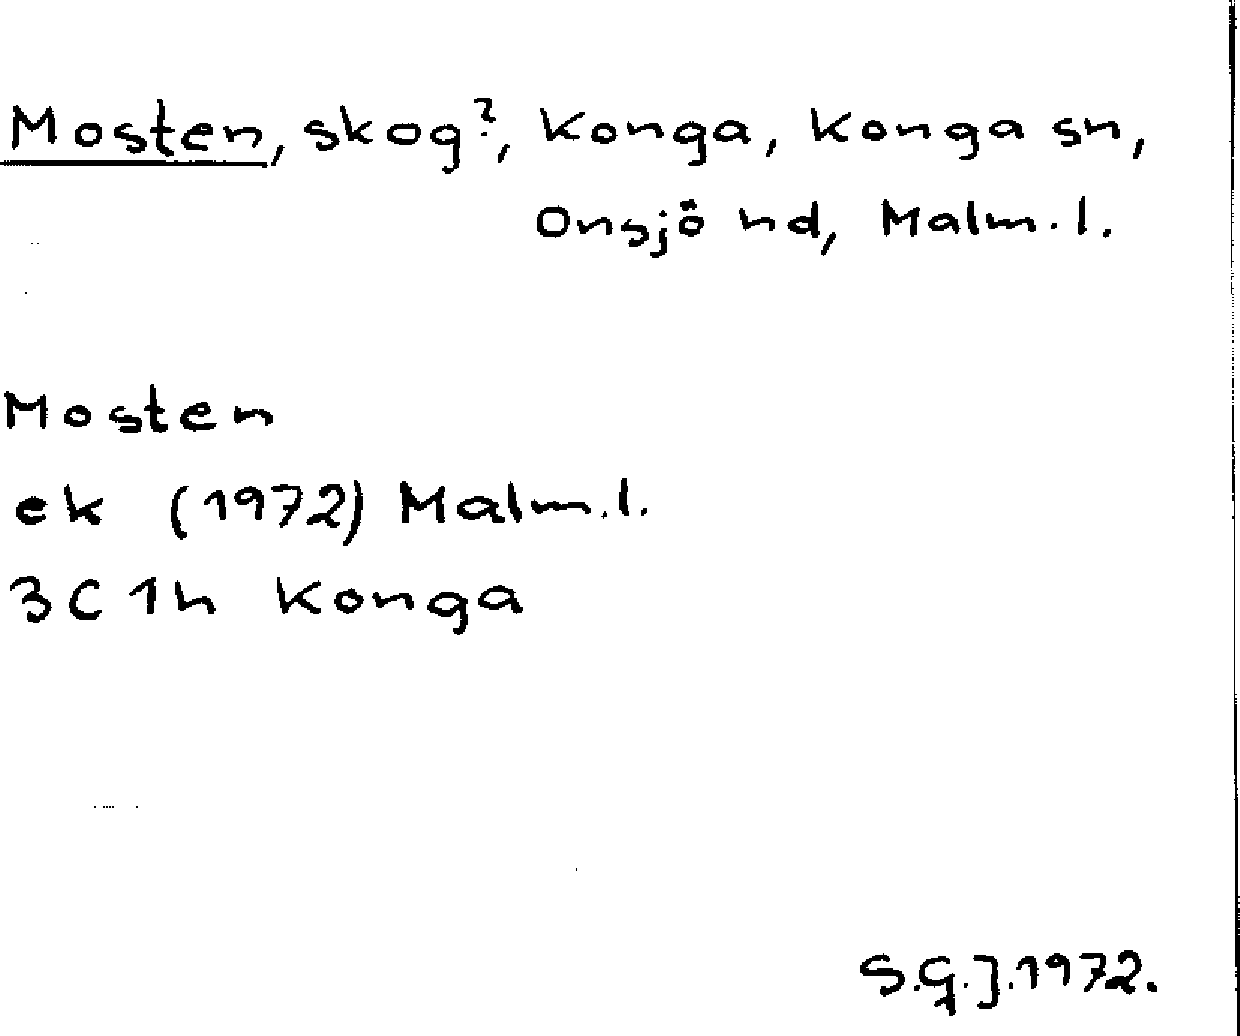 Mosten, skog?, Konga, Konga sn,
Onsjö hd, Malm.l.
Mosten
ek (1972) Malm.l.
3C 1h Konga
S.G.J.1972.